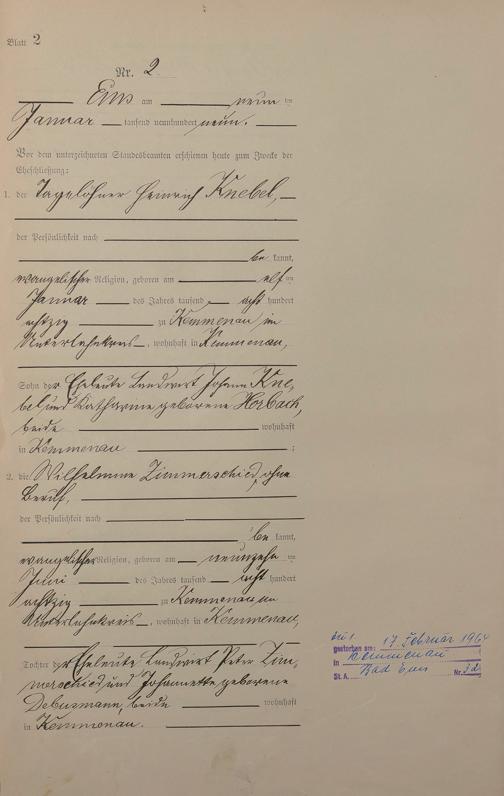 Blatt 2
Nr. 2
Ems am neun ten
Januar tausend neunhundert neun.
Vor dem unterzeichneten Standesbeamten erschienen heute zum Zwecke der
Eheschließung:
1. der Tagelöhner Heinrich Knebel,
der Persönlichkeit nach
be kannt,
evangelischer Religion, geboren am elf ten
Januar des Jahres tausend acht hundert
achtzig zu Kemmenau im
Unterlahnkreis, wohnhaft in Kemmenau,
Sohn der Eheleute Landwirt Johann Kne-
bel und Katharine geborene Horbach,
beide wohnhaft
in Kemmenau ;
2. die Wilhelmine Zimmerschied, ohne
Beruf,
der Persönlichkeit nach
be kannt,
evangelischer Religion, geboren am neunzehn ten
Juni des Jahres tausend acht hundert
achtzig zu Kemmenau im
Unterlahnkreis, wohnhaft in Kemmenau,
Tochter der Eheleute Landwirt Peter Zim-
merschied und Johannette geborene
Debusmann, beide wohnhaft
in Kemmenau.
gestorben am: 17. Februar 1964
in Kemmenau
St. A. Bad Ems Nr.